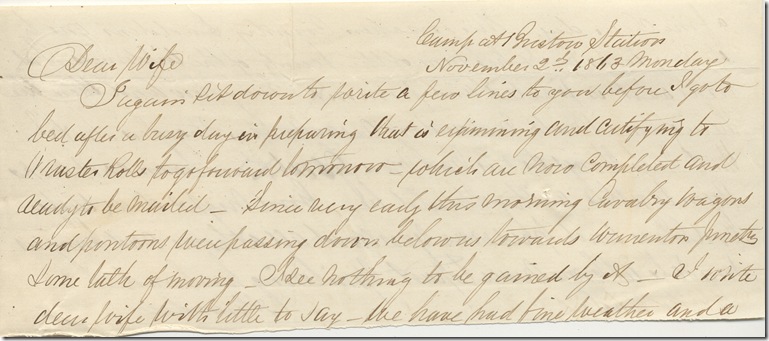 Camp at Bristow Station
November 2d. 1863 Monday
Dear Wife
I again sit down to write a few lines to you before I go to
bed after a busy day in preparing that is examining and certifying to
Muster Rolls to go forward tomorrow - which are now completed and
ready to be mailed - Since very early this morning Cavalry wagons
and pontoons were passing down below us towards Warrenton Junction
Some talk of moving - I see nothing to be gained by it - I write
dear wife with little to say - We have had fine weather and a